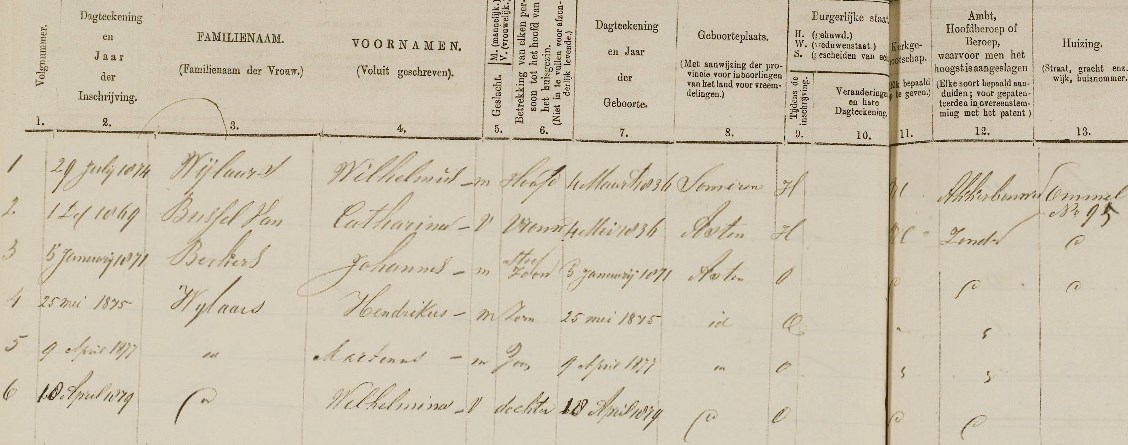 Volgnummer.
1.
Dagteekening
en
Jaar
der
Inschrijving.
2.
FAMILIENAAM.
(Familienaam der Vrouw.)
3.
VOORNAMEN.
(Voluit geschreven).
4.
Geslacht. M. (mannelijk.) V. (vrouwelijk.)
5.
Betrekking van elken per-
soon tot het hoofd van
het huisgezin.
(Niet in te vullen voor afzon-
derlijk levende.)
6.
Dagteekening
en Jaar
der
Geboorte.
7.
Geboorteplaats.
(Met aanwijzing der pro-
vincie voor inboorlingen
van het land voor vreem-
delingen.)
8.
Burgerlijke staat
H. (gehuwd.)
W. (weduwenstaat.)
S. (gescheiden van ec
Tijdens de
inschrijving.
9.
Veranderinge
en hare
Dagteekening.
10.
Kerkge-
ootschap.
lk bepaald
te geven.)
11.
Ambt,
Hoofdberoep of
Beroep,
waarvoor men het
hoogst is aangeslagen
(Elke soort bepaald aan-
duiden; voor gepaten-
teerden in overeenstem-
ming met het patent)
12.
Huizing.
(Straat, gracht enz.
wijk, huisnommer.
13.
1 29 July 1874 Wylaars Wilhelmus - m Hoofd 4 Maart 1836 Someren H Akkerbouwer Ommel
No 95
2 1 Sep 1869 Bussel Van Catharina - V Vrouw 4 Mei 1836 Asten H Zonder
3 5 January 1871 Berkers Johannes - m Stief
Zoon 5 January 1871 Asten O
4 25 mei 1875 Wylaars Hendrikus - m Zoon 25 mei 1875 id O
5 9 April 1877 Martinus - m Zoon 9 April 1877 O
6 18 April 1879 Wilhelmina - V dochter 18 April 1879 O